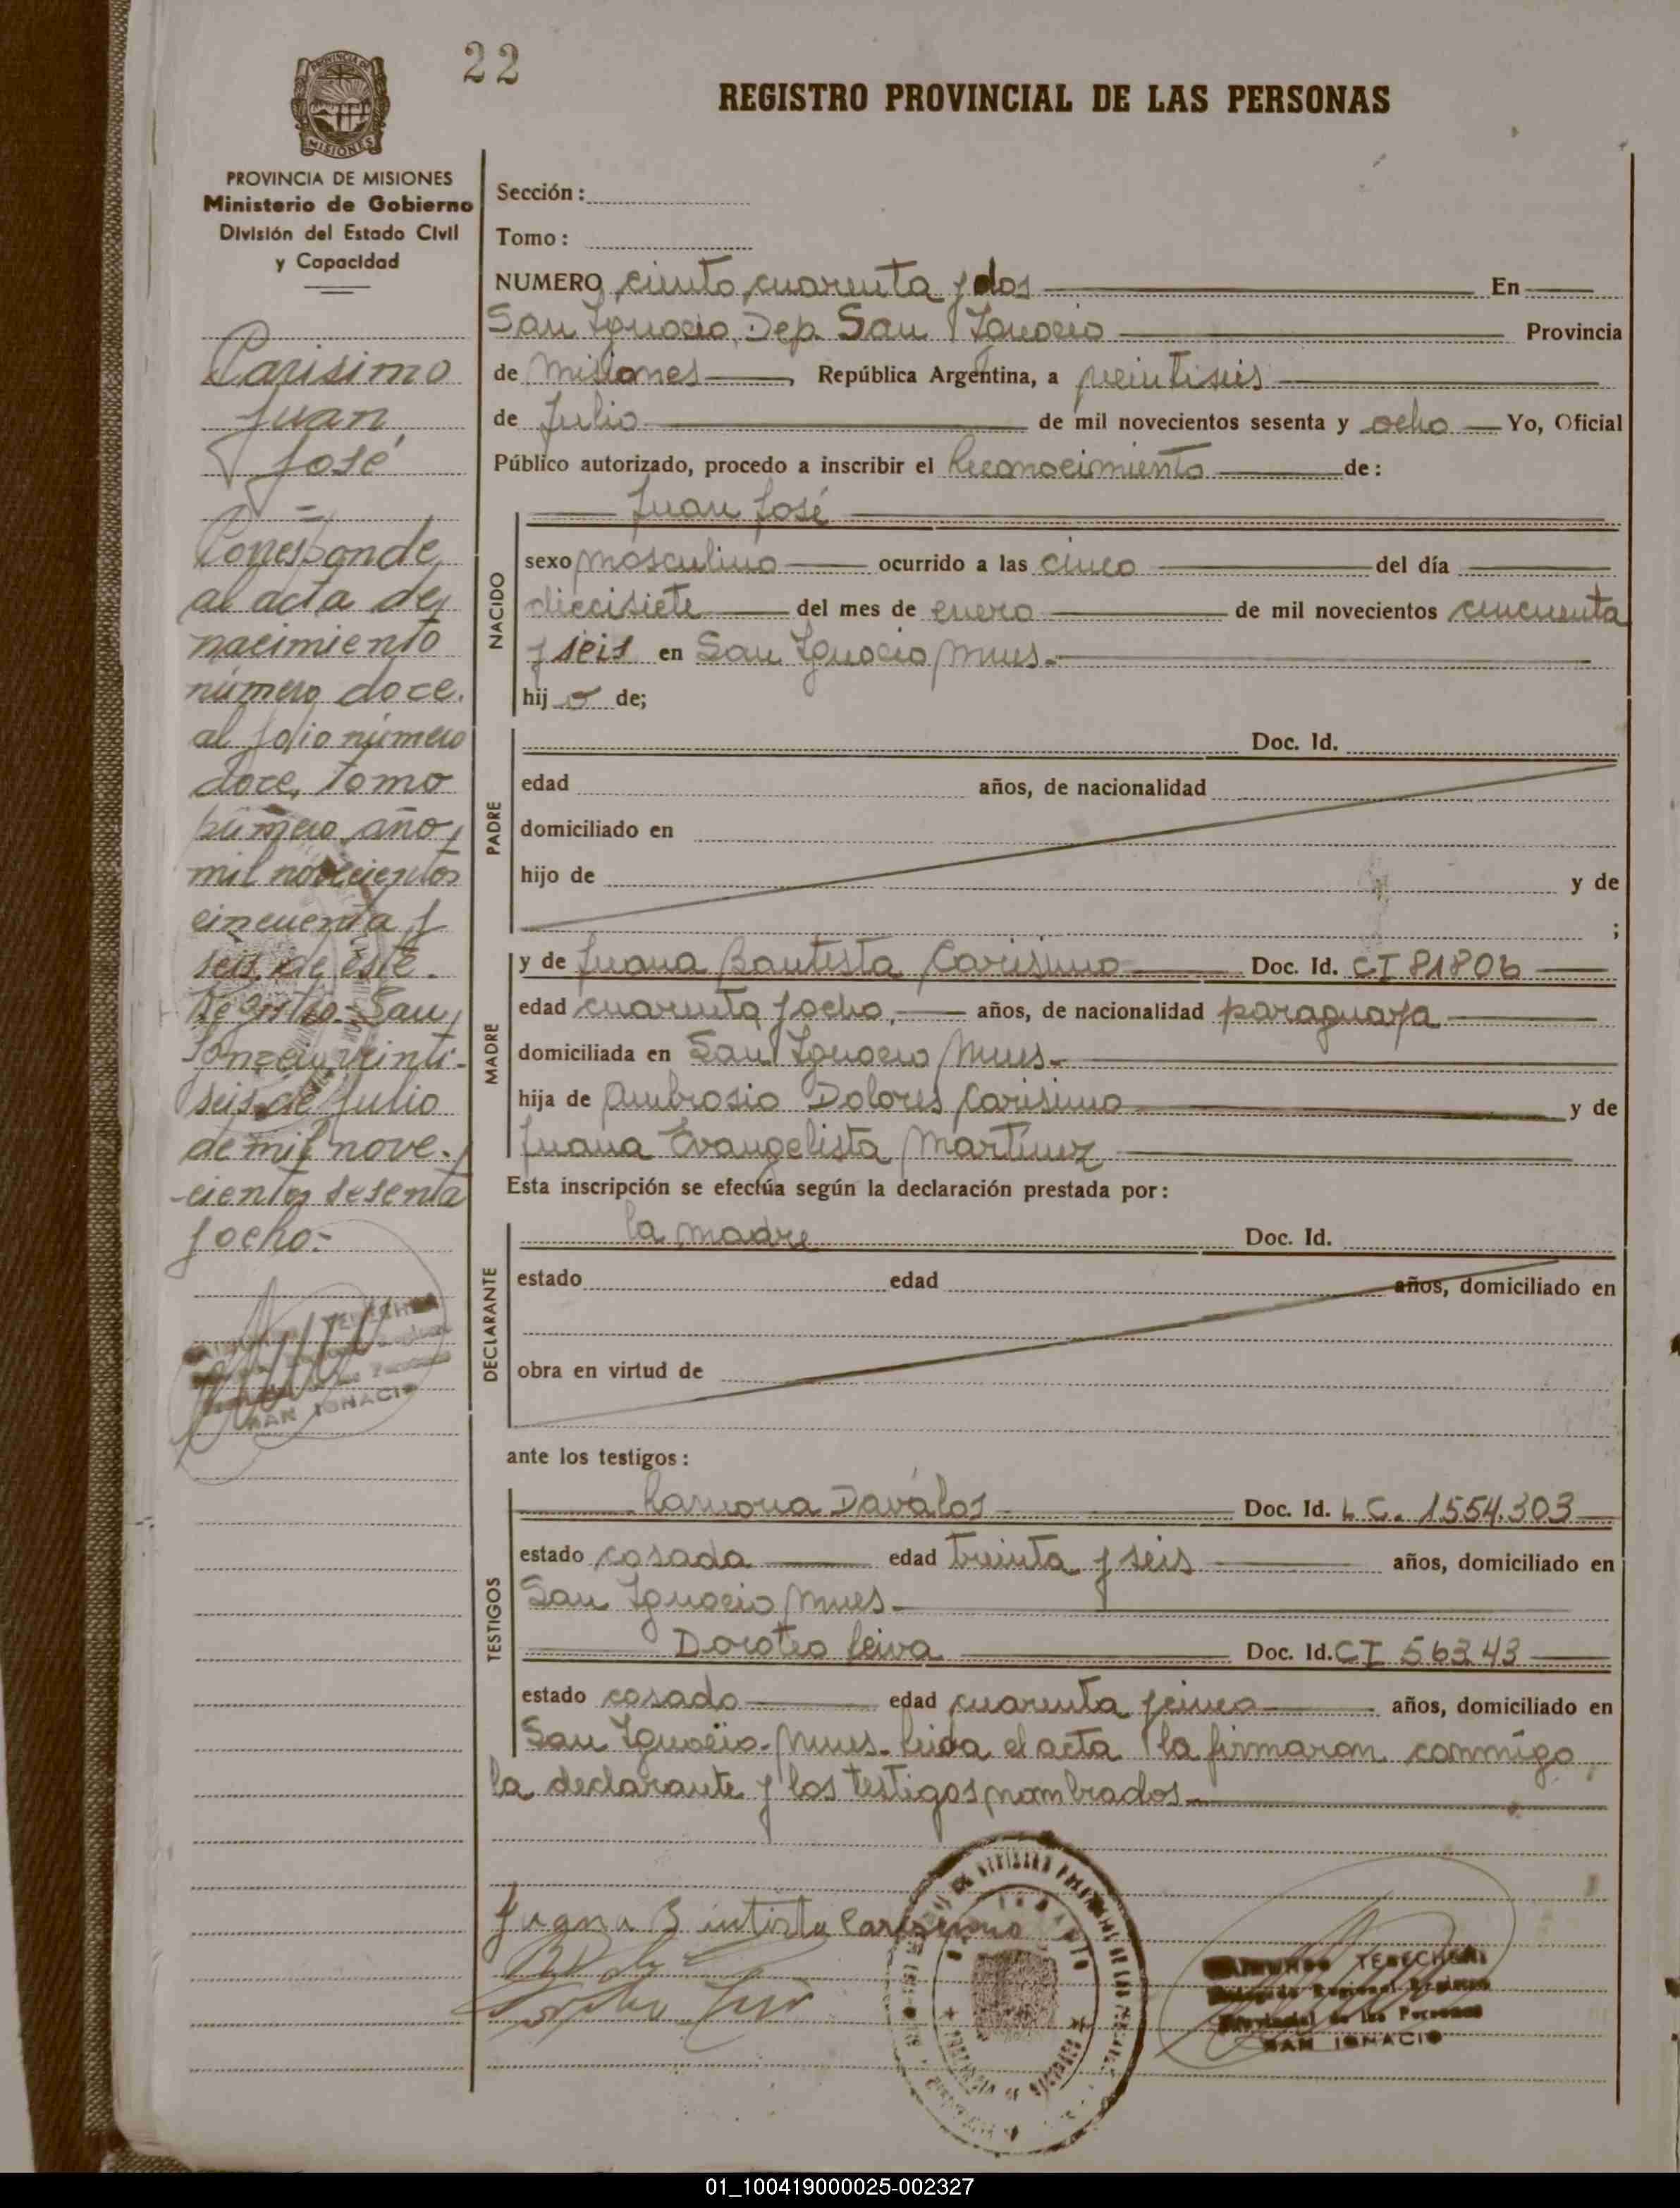 22
REGISTRO PROVINCIAL DE LAS PERSONAS
PROVINCIA DE MISIONES
Ministerio de Gobierno
División del Estado Civil
y Capacidad
Carisimo
Juan
José
=
Corresponde
al acta de
nacimiento
número doce.
al folio número
doce, tomo
primero año
mil novecientos
cincuenta y
seis de este.
Registro San
veinti-
seis de Julio
de mil nove.
-cientos sesenta
y ocho.-
TERECHEN
SAN IGNACIO
Sección:
Tomo:
NUMERO ciento cuarenta y dos En
San Ignacio, Dep. San Ignacio Provincia
de Misiones, República Argentina, a veintiseis
de Julio de mil novecientos sesenta y ocho Yo, Oficial
Público autorizado, procedo a inscribir el Reconocimiento de:
NACIDO
Juan José
sexo masculino ocurrido a las cinco del día
diecisiete del mes de enero de mil novecientos cincuenta
y seis en San Ignacio Mnes.-
hijo de;
PADRE
Doc. Id.
edad años, de nacionalidad
domiciliado en
hijo de y de
;
MADRE
y de Juana Bautista Carisimo Doc. Id. CI 81806
edad cuarenta y ocho, años, de nacionalidad paraguaya
domiciliada en San Ignacio Mnes.-
hija de Ambrosio Dolores Carisimo y de
Juana Evangelista Martínez
Esta inscripción se efectúa según la declaración prestada por:
DECLARANTE
la madre Doc. Id.
estado edad años, domiciliado en
obra en virtud de
ante los testigos:
TESTIGOS
Ramona Dávalos Doc. Id. L C. 1554.303
estado casada edad treinta y seis años, domiciliado en
San Ignacio Mnes.-
Doroteo Leiva Doc. Id. CI 56343
estado casado edad cuarenta y cinco años, domiciliado en
San Ignacio-Mnes.- Leida el acta la firmaron conmigo,
la declarante y los testigos nombrados.-
Carisimo
TERECHEN
Delegado Regional Registro
Provincial de las Personas
SAN IGNACIO
01_100419000025-002327